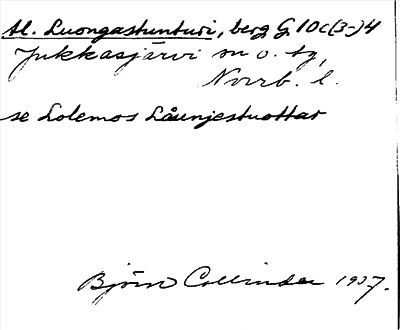 al. Luongastunturi, berg G. 10c(3-)4
Jukkasjärvi sn o. tg,
Norrb. l.
se Lolemos Låunjestuottar
Björn Collinder 1937.